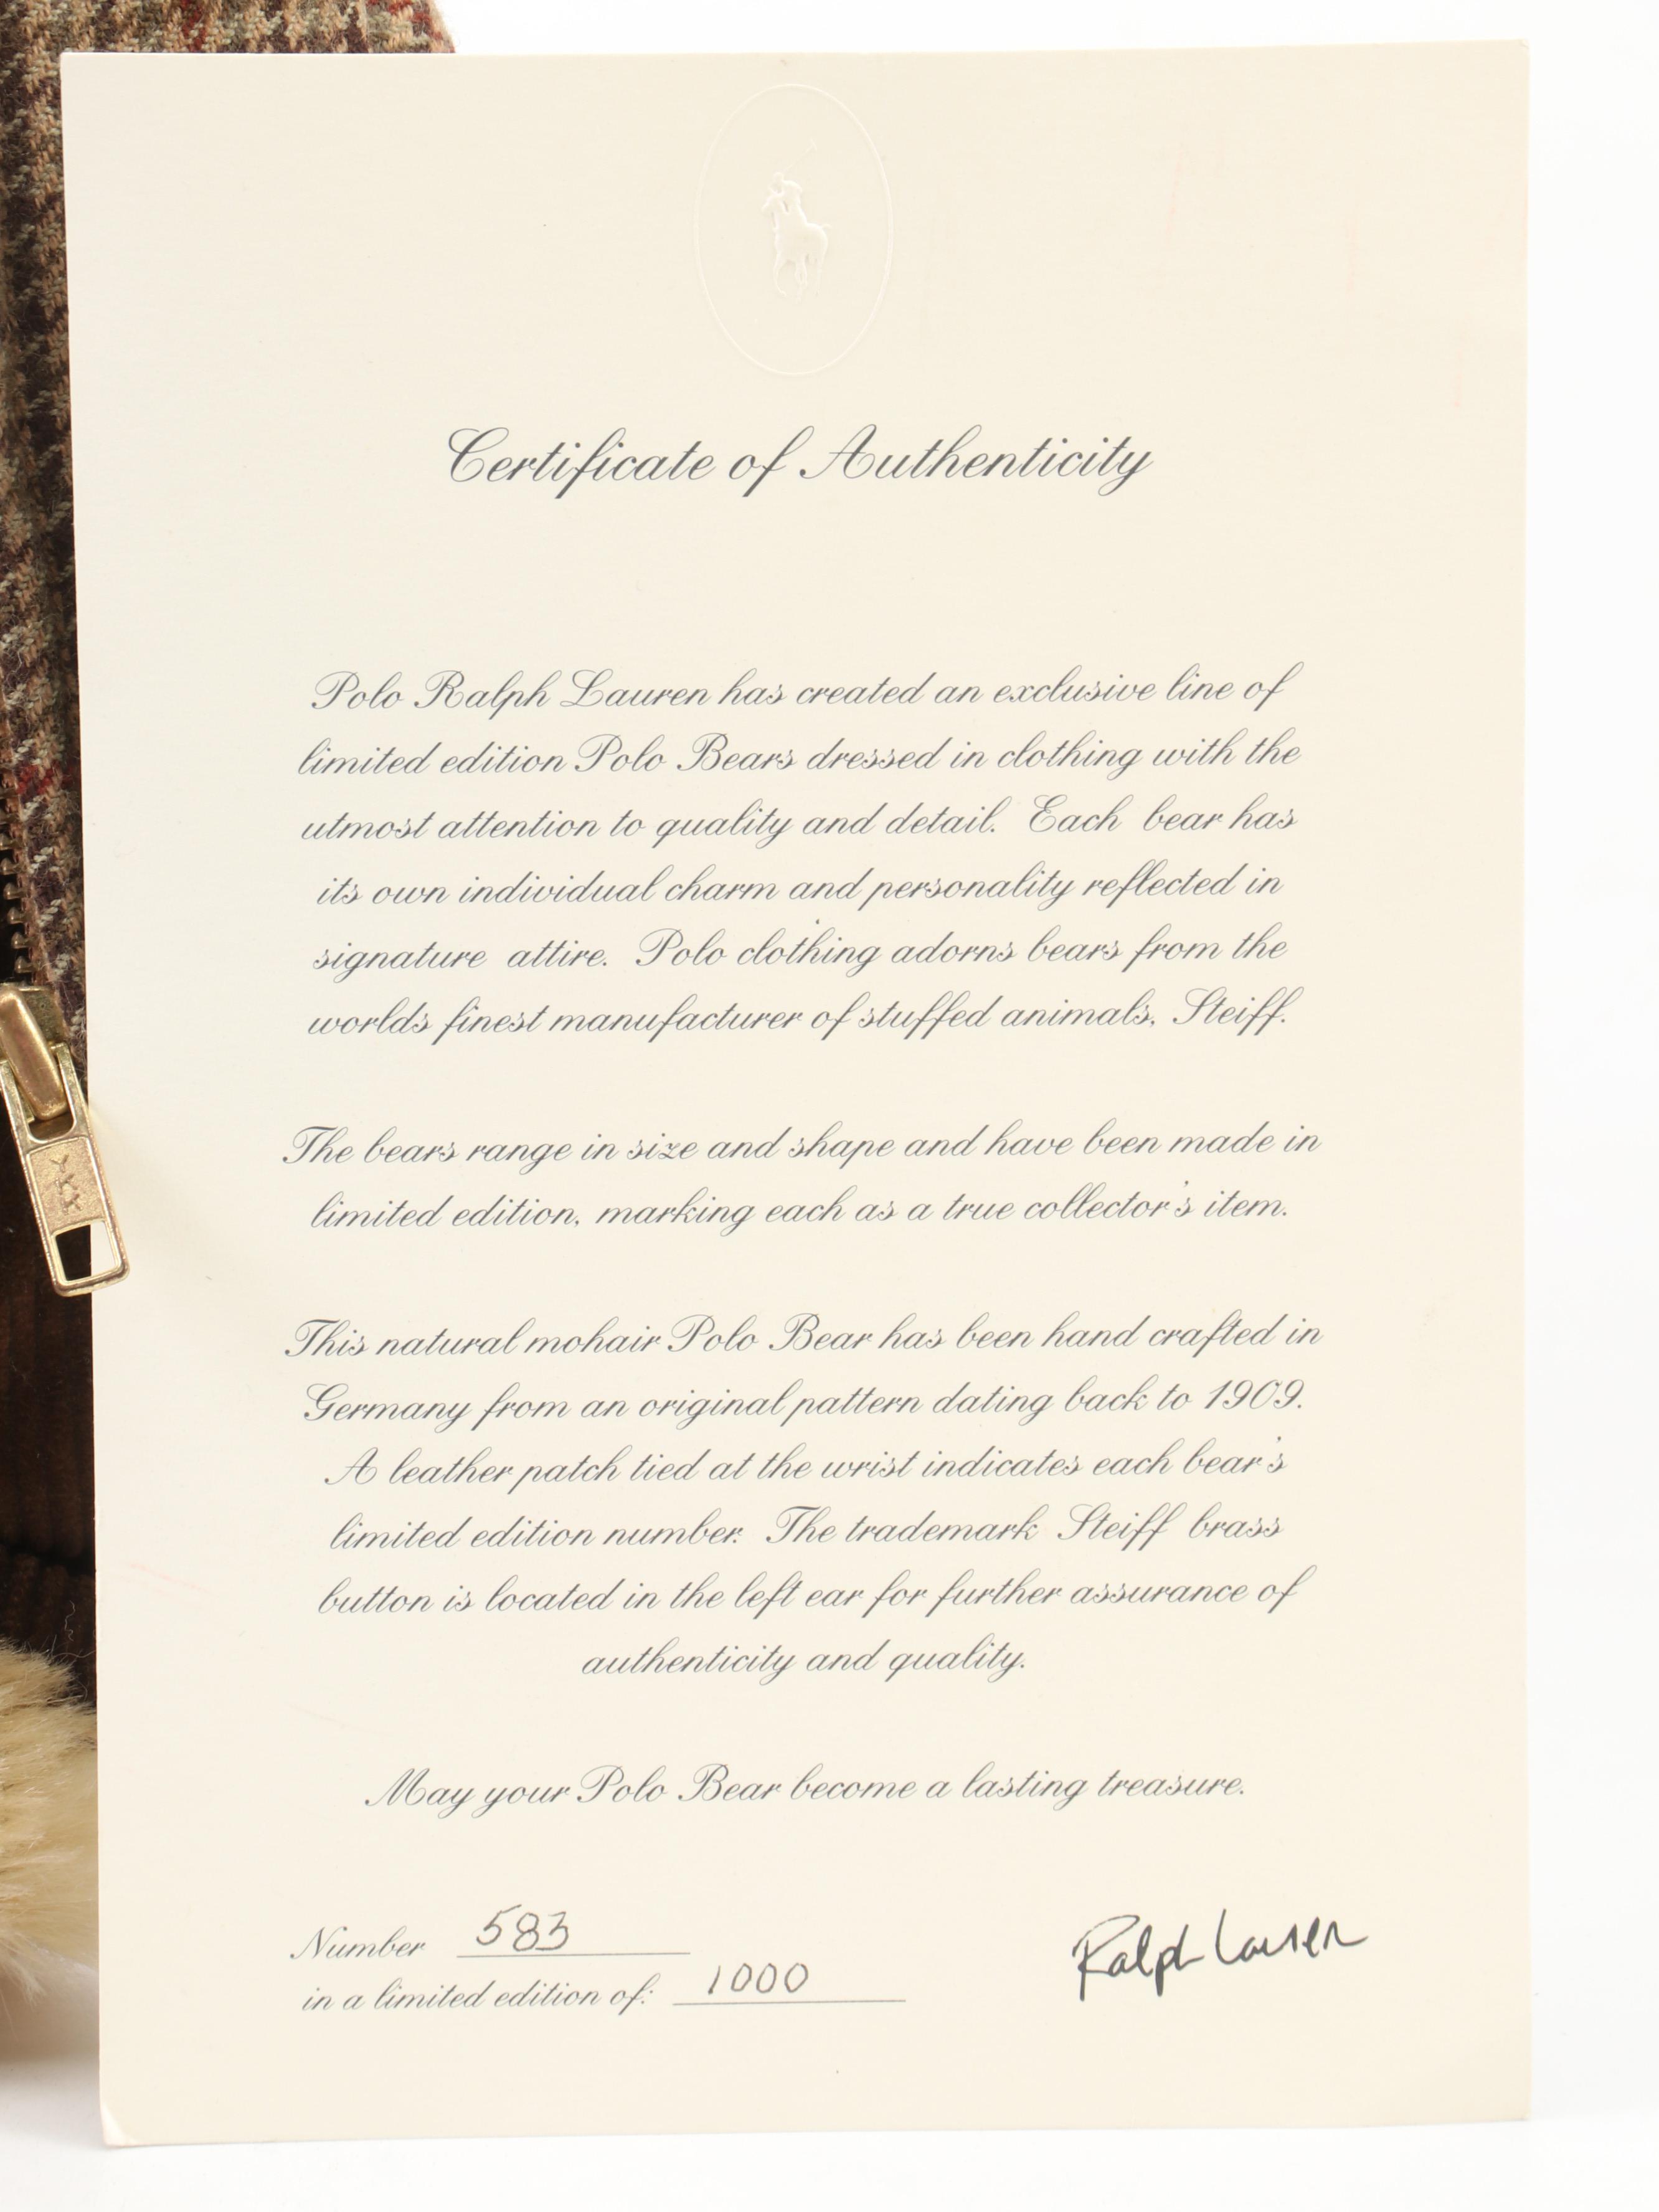 Certificate of Authenticity
Polo Ralph Lauren has created an exclusive line of
limited edition Polo Bears dressed in clothing with the
utmost attention to quality and detail. Each bear has
its own individual charm and personality reflected in
signature attire. Polo clothing adorns bears from the
worlds finest manufacturer of stuffed animals, Steiff.
The bears range in size and shape and have been made in
limited edition, marking each as a true collector's item.
This natural mohair Polo Bear has been hand crafted in
Germany from an original pattern dating back to 1909.
A leather patch tied at the wrist indicates each bear's
limited edition number. The trademark Steiff brass
button is located in the left ear for further assurance of
authenticity and quality.
May your Polo Bear become a lasting treasure.
Number 583
in a limited edition of: 1000
Ralph Lauren
YKK